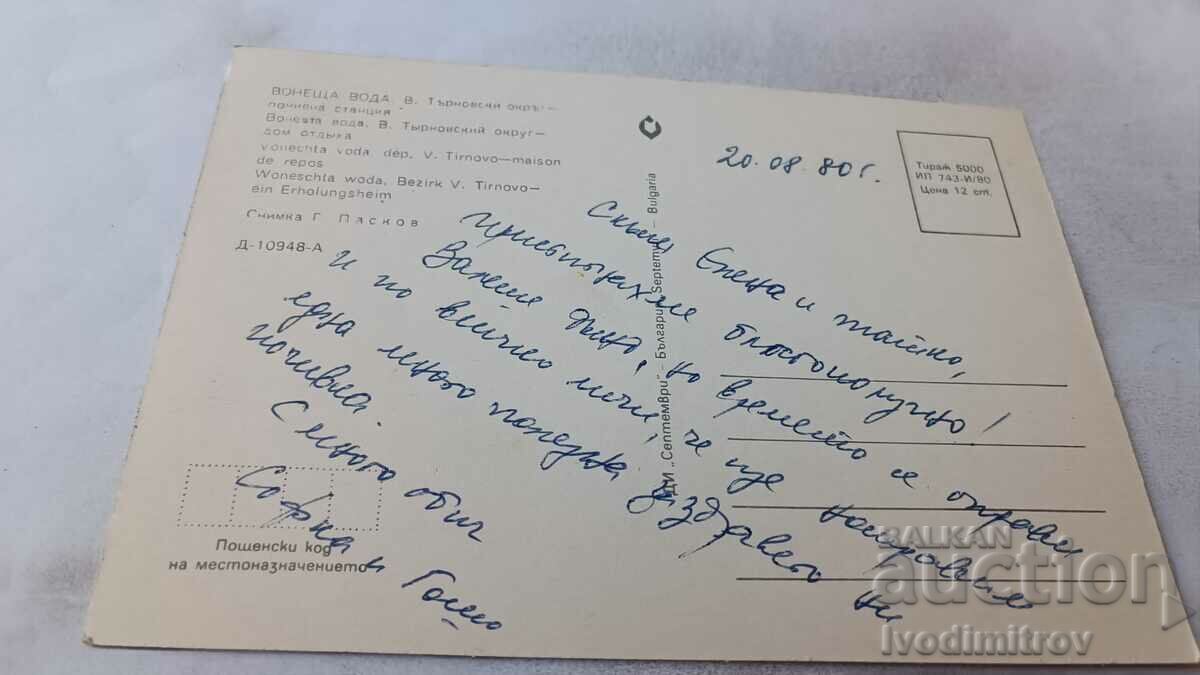 ВОНЕЩА ВОДА, В. Търновски окръг—
почивна станция
Вонешта вода, В. Тырновский округ—
дом отдыха
Vonechta voda, dép. V. Tirnovo—maison
de repos
Woneschta woda, Bezirk V. Tirnovo—
ein Erholungsheim
Снимка Г. Пасков
Д-10948-А
ДИ „Септември" – България Septemvri – Bulgaria
Тираж 5000
ИП 743-И/80
Цена 12 ст.
20.08.80 г.
Скъпи Елена и
пристигнахме благополучно!
Валеше дъжд, но времето се оправи
и по всичко личи, че ще направим
една много полезна за здравето ни
почивка.
С много обич
Софка и Гошо
Пощенски код
на местоназначението
BALKAN
auction
Ivodimitrov